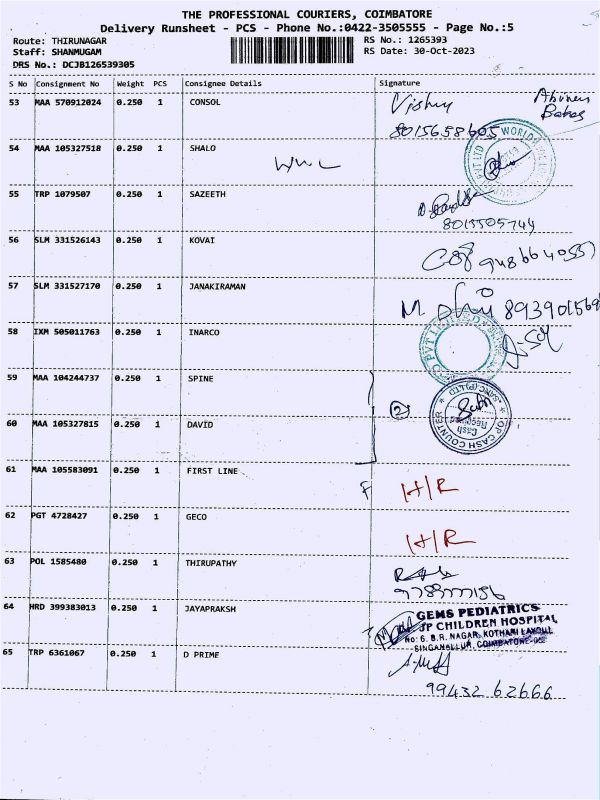 THE PROFESSIONAL COURIERS, COIMBATORE
Delivery Runsheet - PCS - Phone No.:0422-3505555 - Page No.:5
Route: THIRUNAGAR RS No.: 1265393
Staff: SHANMUGAM RS Date: 30-Oct-2023
DRS No.: DCJB126539305
S No Consignment No Weight PCS Consignee Details Signature
53 MAA 570912024 0.250 1 CONSOL Vishny
8015658605
54 MAA 105327518 0.250 1 SHALO
WORLD
PVT LTD
55 TRP 1079507 0.250 1 SAZEETH
8015505744
56 SLM 331526143 0.250 1 KOVAI
57 SLM 331527170 0.250 1 JANAKIRAMAN
M 8939015698
58 IXM 505011763 0.250 1 INARCO
PVT L
59 MAA 104244737 0.250 1 SPINE
60 MAA 105327815 0.250 1 DAVID 2
OP CASH COUNTER
Cash
61 MAA 105583091 0.250 1 FIRST LINE F H/R
62 PGT 4728427 0.250 1 GECO H/R
63 POL 1585480 0.250 1 THIRUPATHY
64 HRD 399383013 0.250 1 JAYAPRAKSH
GEMS PEDIATRICS
JP CHILDREN HOSPITAL
No: 6. B.R. NAGAR, KOTHARI LAYOUT
SINGANALLUR, COIMBATORE
65 TRP 6361067 0.250 1 D PRIME
99432 62666